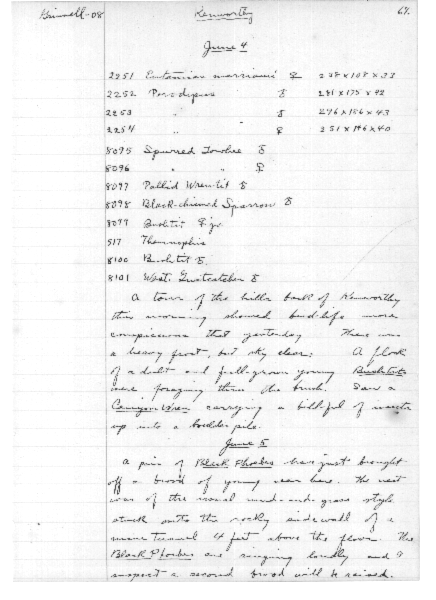 Grinnell-08 Kenworthy 67.
June 4
2251 Eutamias merriami ♀ 238 x 108 x 33
2252 Perodipus ♂ 281 x 175 x 42
2253 " ♂ 296 x 186 x 43
2254 " ♀ 251 x 146 x 40
8095 Spurred Towhee ♂
8096 " " ♀
8097 Pallid Wren-tit ♂
8098 Black-chinned Sparrow ♂
8099 Bushtit ♀ juv
517 Thamnophis
8100 Bushtit ♂
8101 West. Gnatcatcher ♂
A tour of the hills back of Kenworthy
this morning showed bird-life more
conspicuous that yesterday. There was
a heavy frost, but sky clear. A flock
of adult and full-grown young Bushtits
were foraging thru the brush. Saw a
Canyon Wren carrying a billful of insects
up into a boulder pile.
June 5
A pair of Black Phoebes have just brought
off a brood of young near here. The nest
was of the usual mud-and-grass style
stuck onto the rocky sidewall of a
mine tunnel 4 feet above the floor. The
Black Phoebes are singing loudly and I
suspect a second brood will be raised.